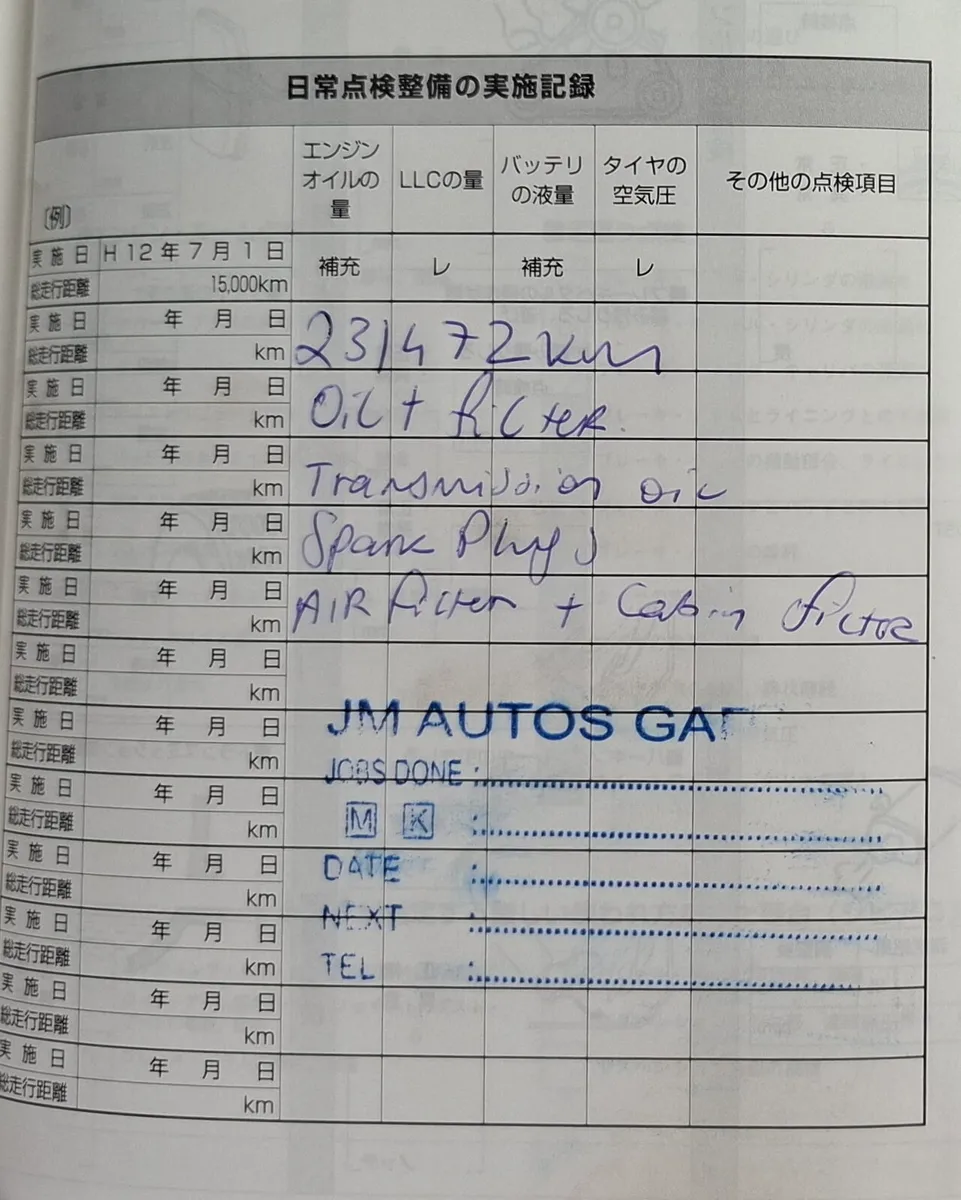 日常点検整備の実施記録
〔例〕 エンジンオイルの量 LLCの量 バッテリの液量 タイヤの空気圧 その他の点検項目
実施日 H12年7月1日 補充 レ 補充 レ
総走行距離 15,000km
実施日 年 月 日
総走行距離 km 231472km
実施日 年 月 日
総走行距離 km Oil + filter.
実施日 年 月 日
総走行距離 km Transmission oil
実施日 年 月 日
総走行距離 km Spark Plugs
実施日 年 月 日
総走行距離 km AIR filter + Cabin filter
実施日 年 月 日
総走行距離 km
実施日 年 月 日 JM AUTOS
総走行距離 km JOBS DONE :
実施日 年 月 日
総走行距離 km M K :
実施日 年 月 日 DATE :
総走行距離 km
実施日 年 月 日 NEXT :
総走行距離 km TEL :
実施日 年 月 日
総走行距離 km
実施日 年 月 日
総走行距離 km